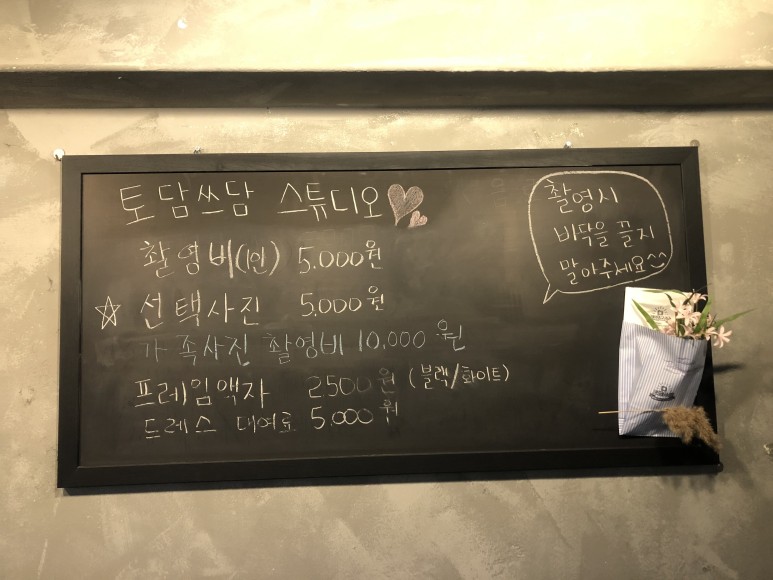 토담쓰담 스튜디오
촬영비(1인) 5.000원
☆ 선택사진 5.000원
가족사진 촬영비 10,000원
프레임액자 2.500원 (블랙/화이트)
드레스 대여료 5.000원
촬영시
비닥을 끌지
말아주세요^^